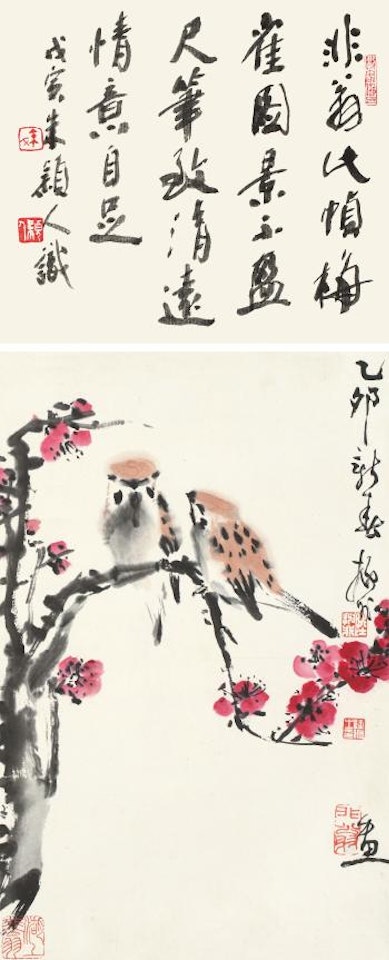 非翁此幀梅
雀圖景不盈
尺筆致清遠
情意自足
戊寅朱穎人識
乙卯新春抑非
畫